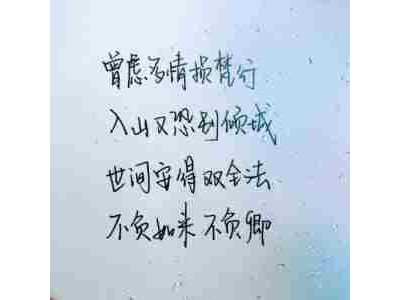 曾虑多情损梵行
入山又恐别倾城
世间安得双全法
不负如来不负卿